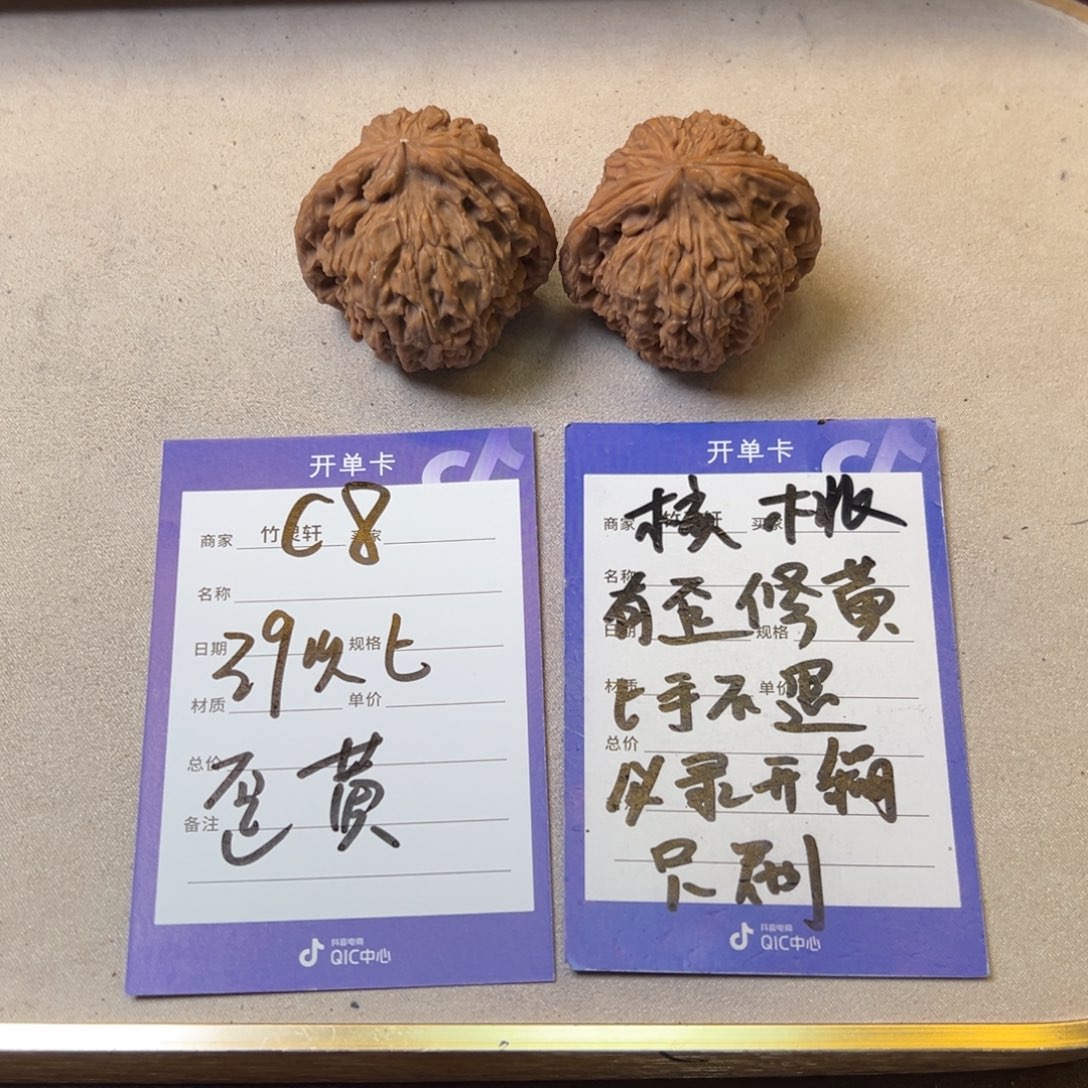 开单卡
C8
商家 竹灵轩 买家
名称
日期 规格
39以上
材质 单价
总价
歪黄
备注
抖音电商
QIC中心
开单卡
核桃
商家 竹灵轩 买家
名称
有歪修黄
日期 规格
材质 单价
上手不退
总价
必录开箱
只刷
抖音电商
QIC中心